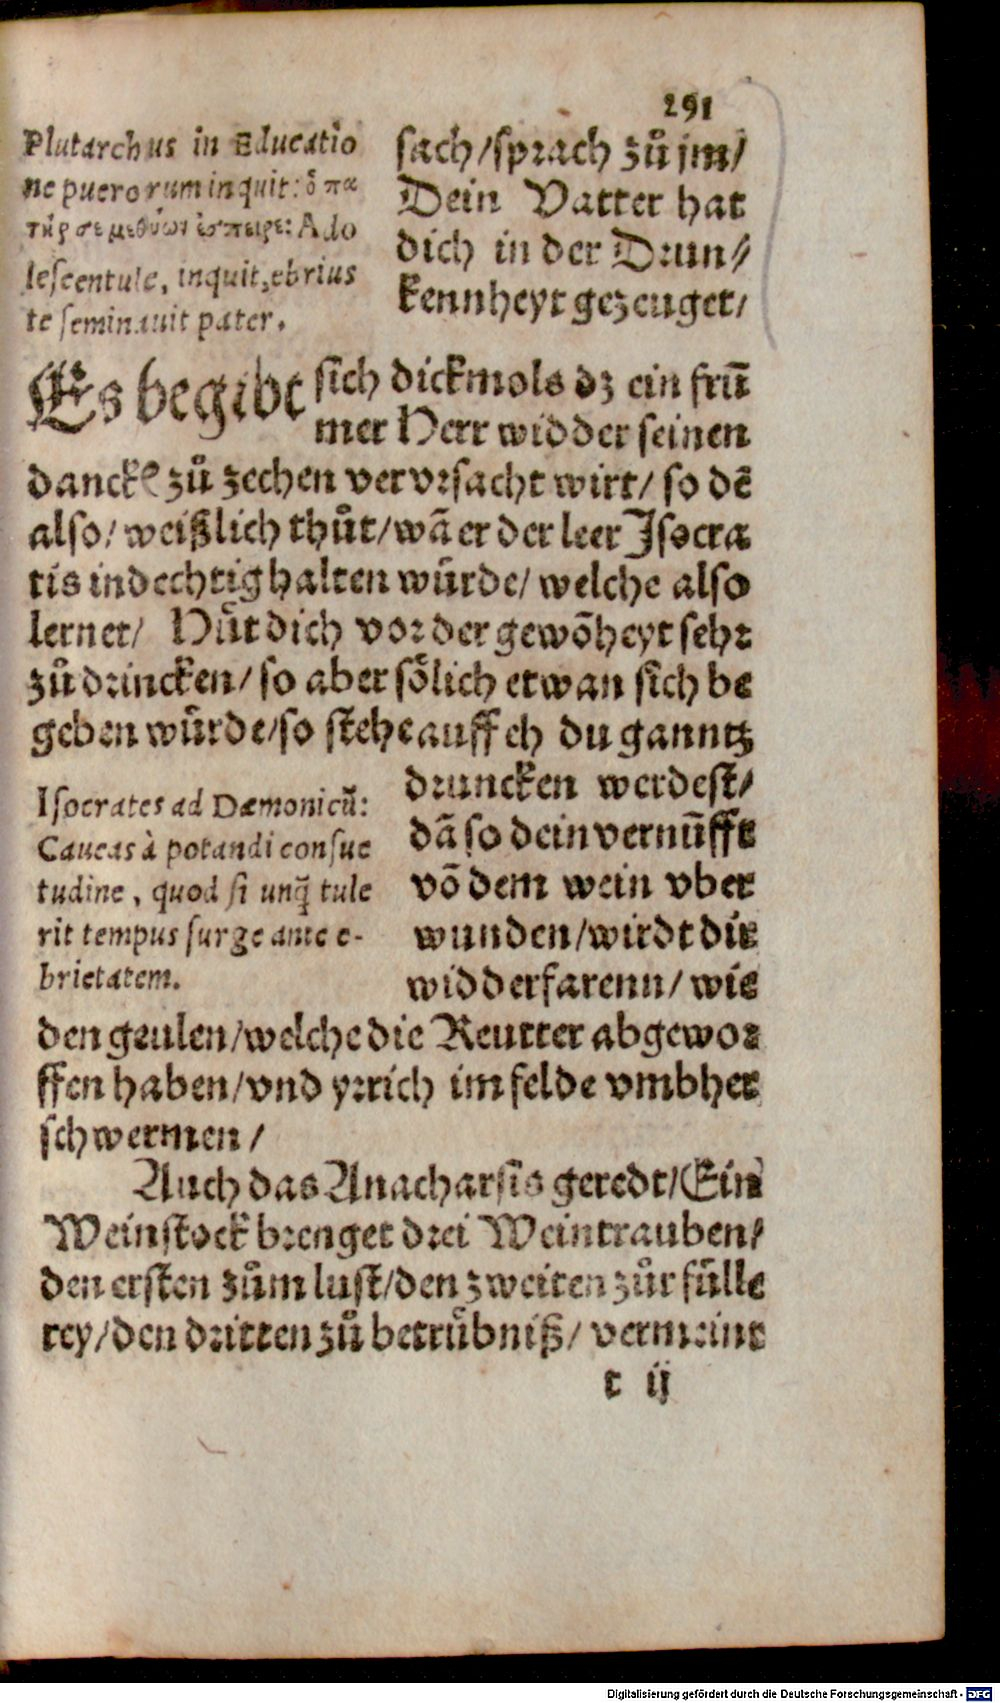 291
Plutarchus in Educatio
ne puerorum inquit: ὁ πα
τήρ σε μεθύων ἔσπειρε: Ado
lescentule, inquit, ebrius
te seminauit pater.
sach/sprach zů jm/
Dein Vatter hat
dich in der Drun/
kennheyt gezeuget/
Es begibt sich dickmols dz ein frū
mer Herr widder seinen
danck zů zechen vervrsacht wirt/ so dē
also/ weißlich thůt/wā er der leer Isocra
tis indechtig halten würde/ welche also
lernet/ Hüt dich vor der gewōheyt sehr
zů drincken/so aber sölich etwan sich be
geben würde/so stehe auff eh du ganntz
Isocrates ad Dæmonicū:
Caueas à potandi consue
tudine, quod si unq̄ tule
rit tempus surge ante e-
brietatem.
druncken werdest/
dā so dein vernūfft
vō dem wein vber
wunden/wirdt dir
widderfarenn/ wie
den geulen/welche die Reutter abgewor
ffen haben/vnd yrrich im felde vmbher
schwermen/
Auch das Anacharsis geredt/Ein
Weinstock brenget drei Weintrauben/
den ersten zům lust/den zweiten zůr fülle
rey/den dritten zů betrübniß/ vermeint
t ij
Digitalisierung gefördert durch die Deutsche Forschungsgemeinschaft - DFG